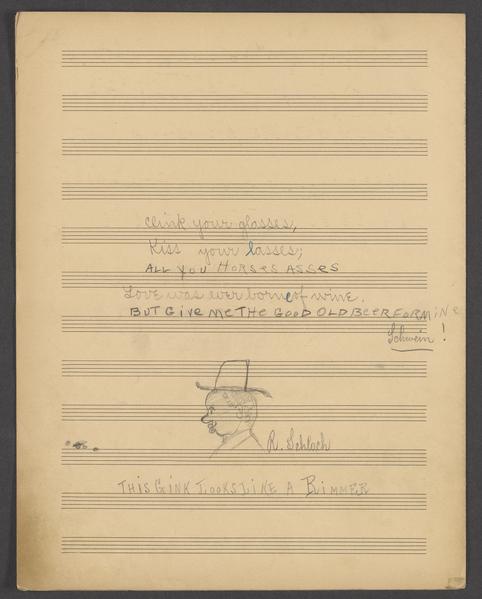 Clink your glasses,
Kiss your lasses;
ALL YOU HORSES ASSES
Love was ever borne of wine.
BUT GIVE ME THE GOOD OLD BEER FOR MINE
Schwein!
R. Schloch
THIS GINK LOOKS LIKE A RIMMER